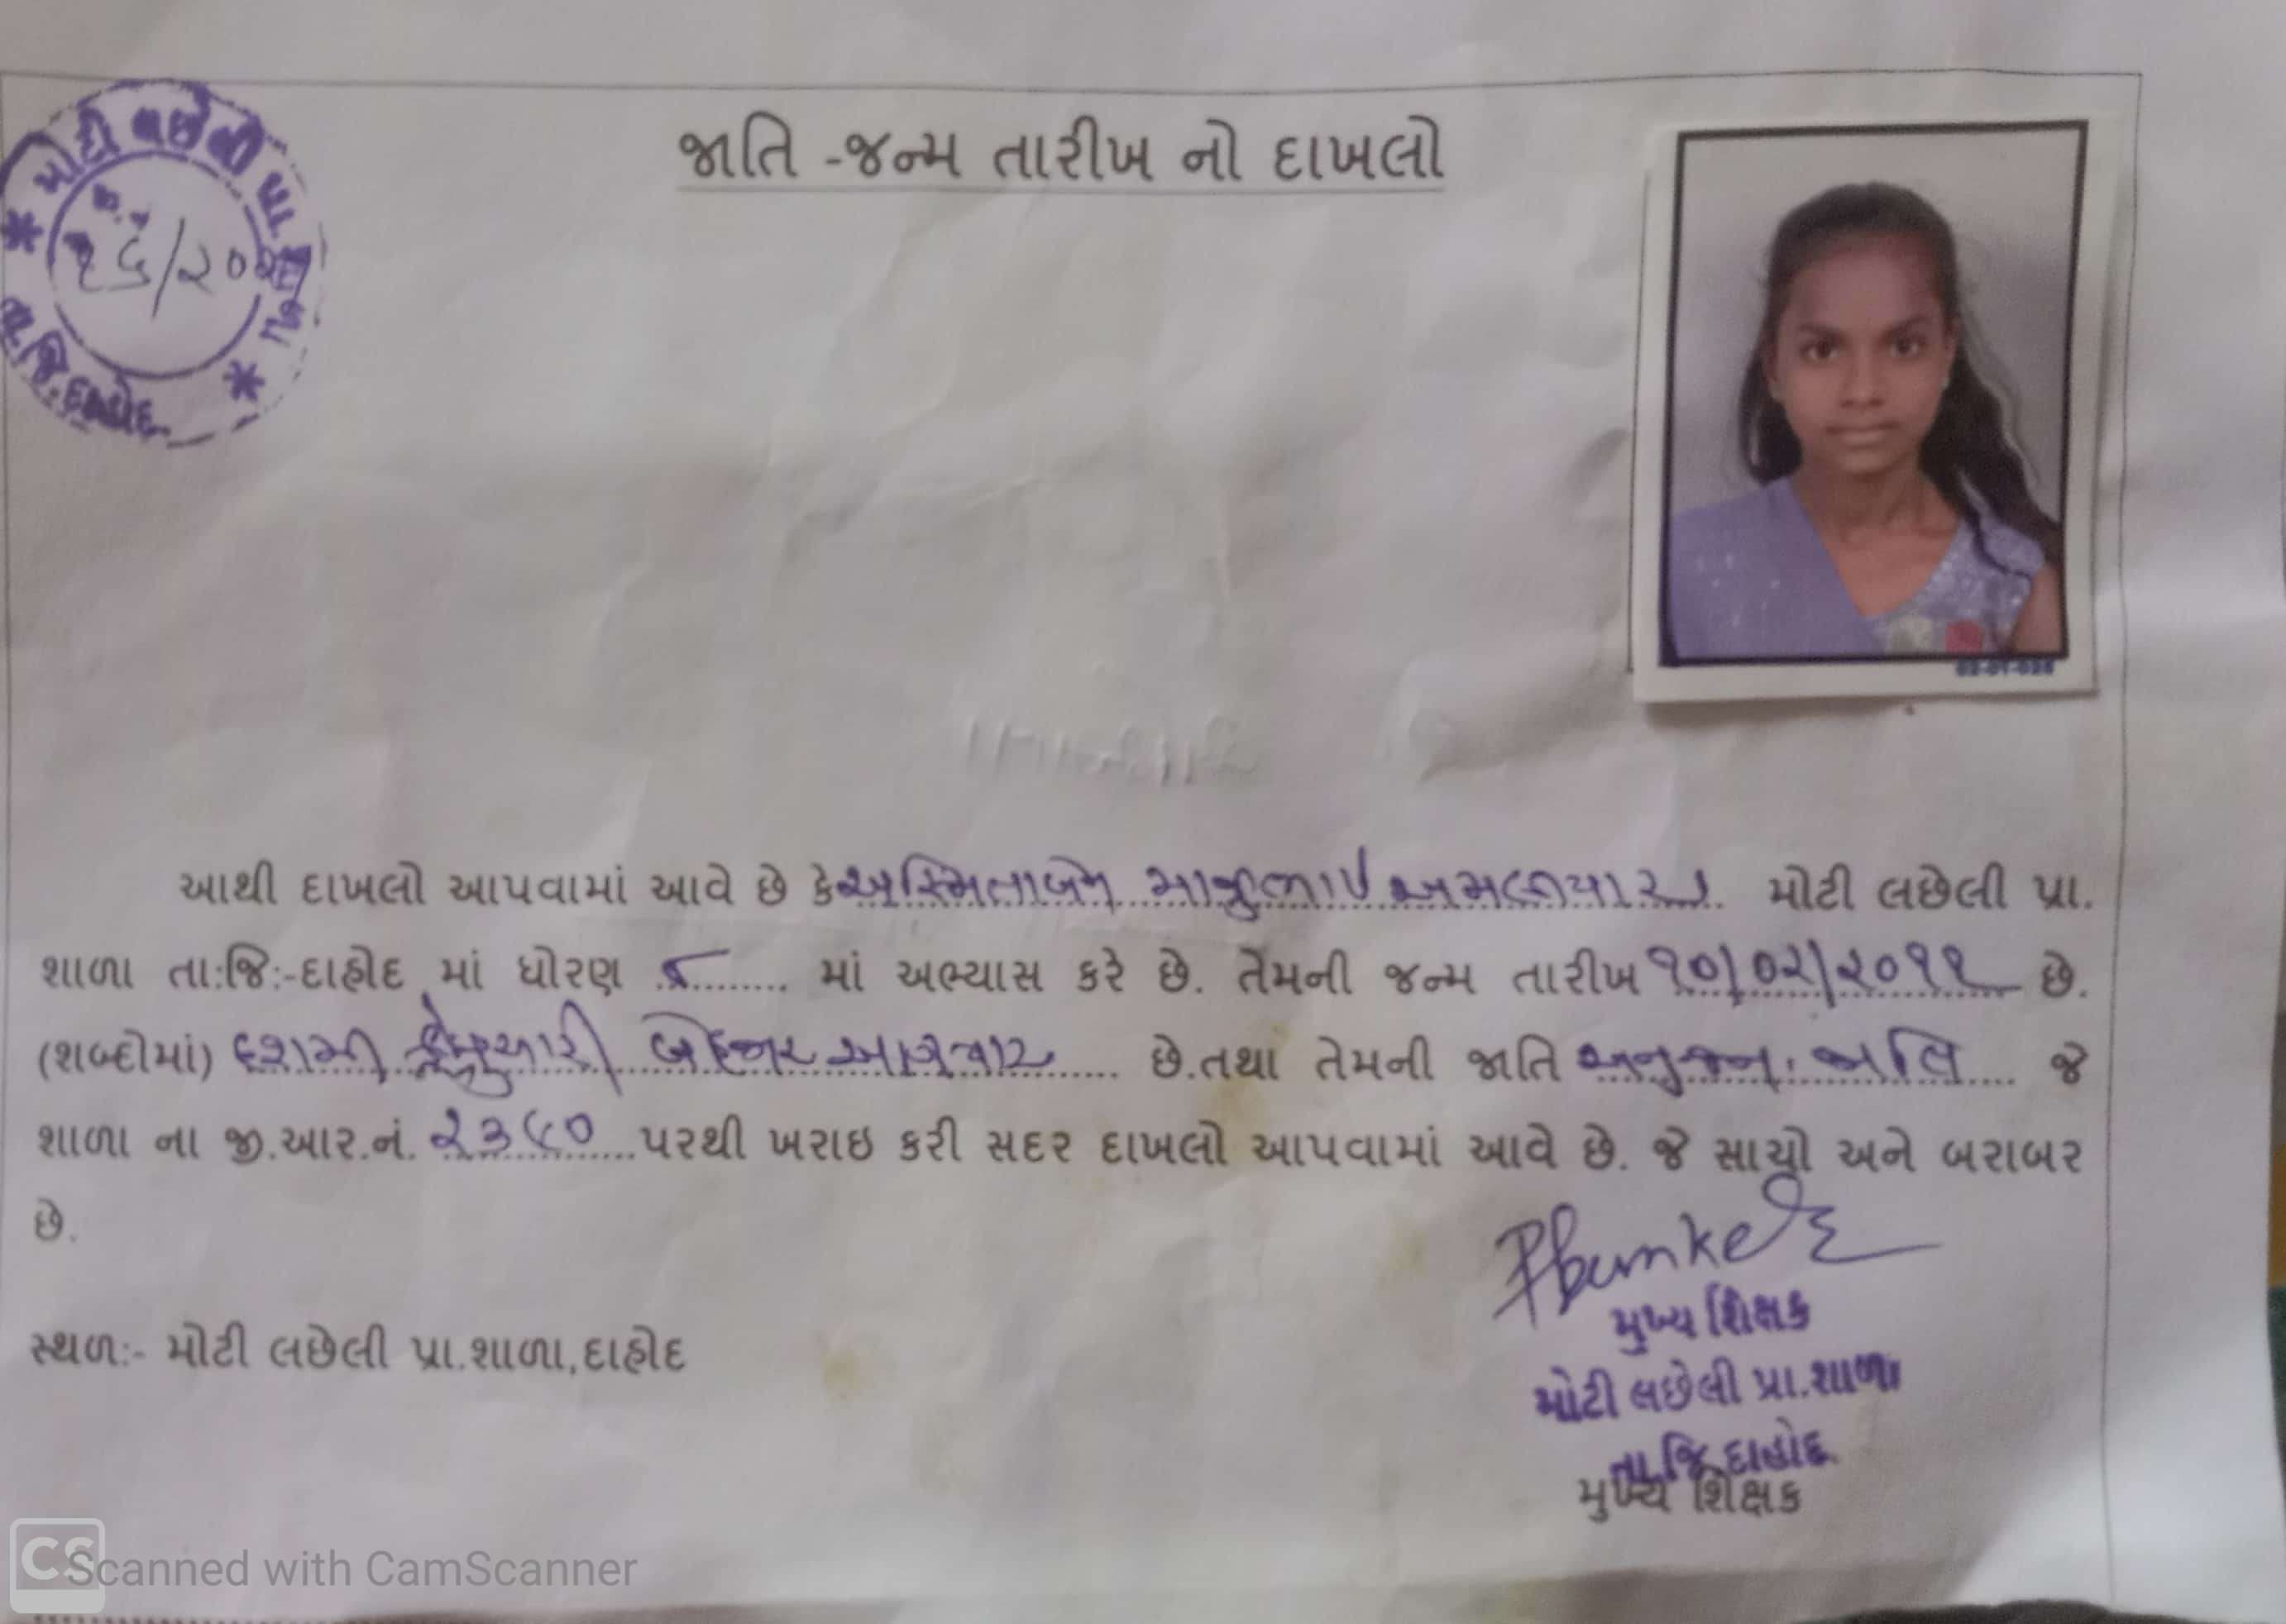 જાતિ -જન્મ તારીખ નો દાખલો
મોટી લછેલી પ્રા. શાળા
તા.જિ.દાહોદ
02-01-026
આથી દાખલો આપવામાં આવે છે કે અસ્મિતાબેન અમલીયાર મોટી લછેલી પ્રા.
શાળા તા:જિ:-દાહોદ માં ધોરણ ૮ માં અભ્યાસ કરે છે. તેમની જન્મ તારીખ ૧૦/૦૨/૨૦૧૧ છે.
(શબ્દોમાં) દશમી ફેબ્રુઆરી બેહજાર અગિયાર છે.તથા તેમની જાતિ અનુ.જન.જાતિ જે
શાળા ના જી.આર.નં. ૨૩૯૦ પરથી ખરાઇ કરી સદર દાખલો આપવામાં આવે છે. જે સાચો અને બરાબર
છે.
મુખ્ય શિક્ષક
સ્થળ:- મોટી લછેલી પ્રા.શાળા,દાહોદ
મોટી લછેલી પ્રા.શાળા
તા.જિ.દાહોદ
મુખ્ય શિક્ષક
CS Scanned with CamScanner